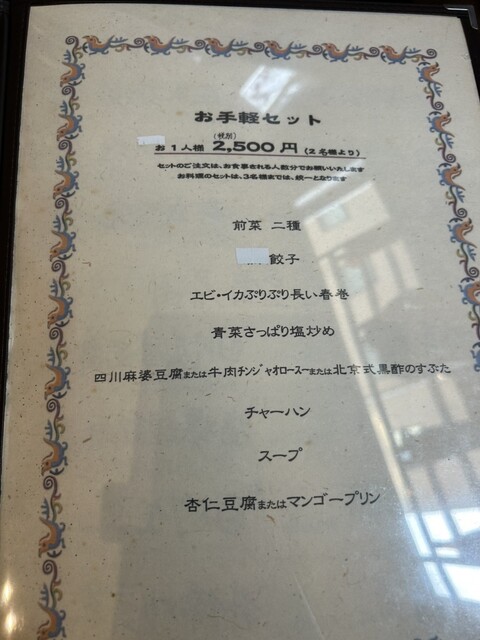 お手軽セット
(税別)
お1人様 2,500円 (2名様より)
セットのご注文は、お食事される人数分でお願いいたします
お料理のセットは、3名様までは、統一となります
前菜 二種
餃子
エビ・イカぷりぷり長い春巻
青菜さっぱり塩炒め
四川麻婆豆腐または牛肉チンジャオロースーまたは北京式黒酢のすぶた
チャーハン
スープ
杏仁豆腐またはマンゴープリン